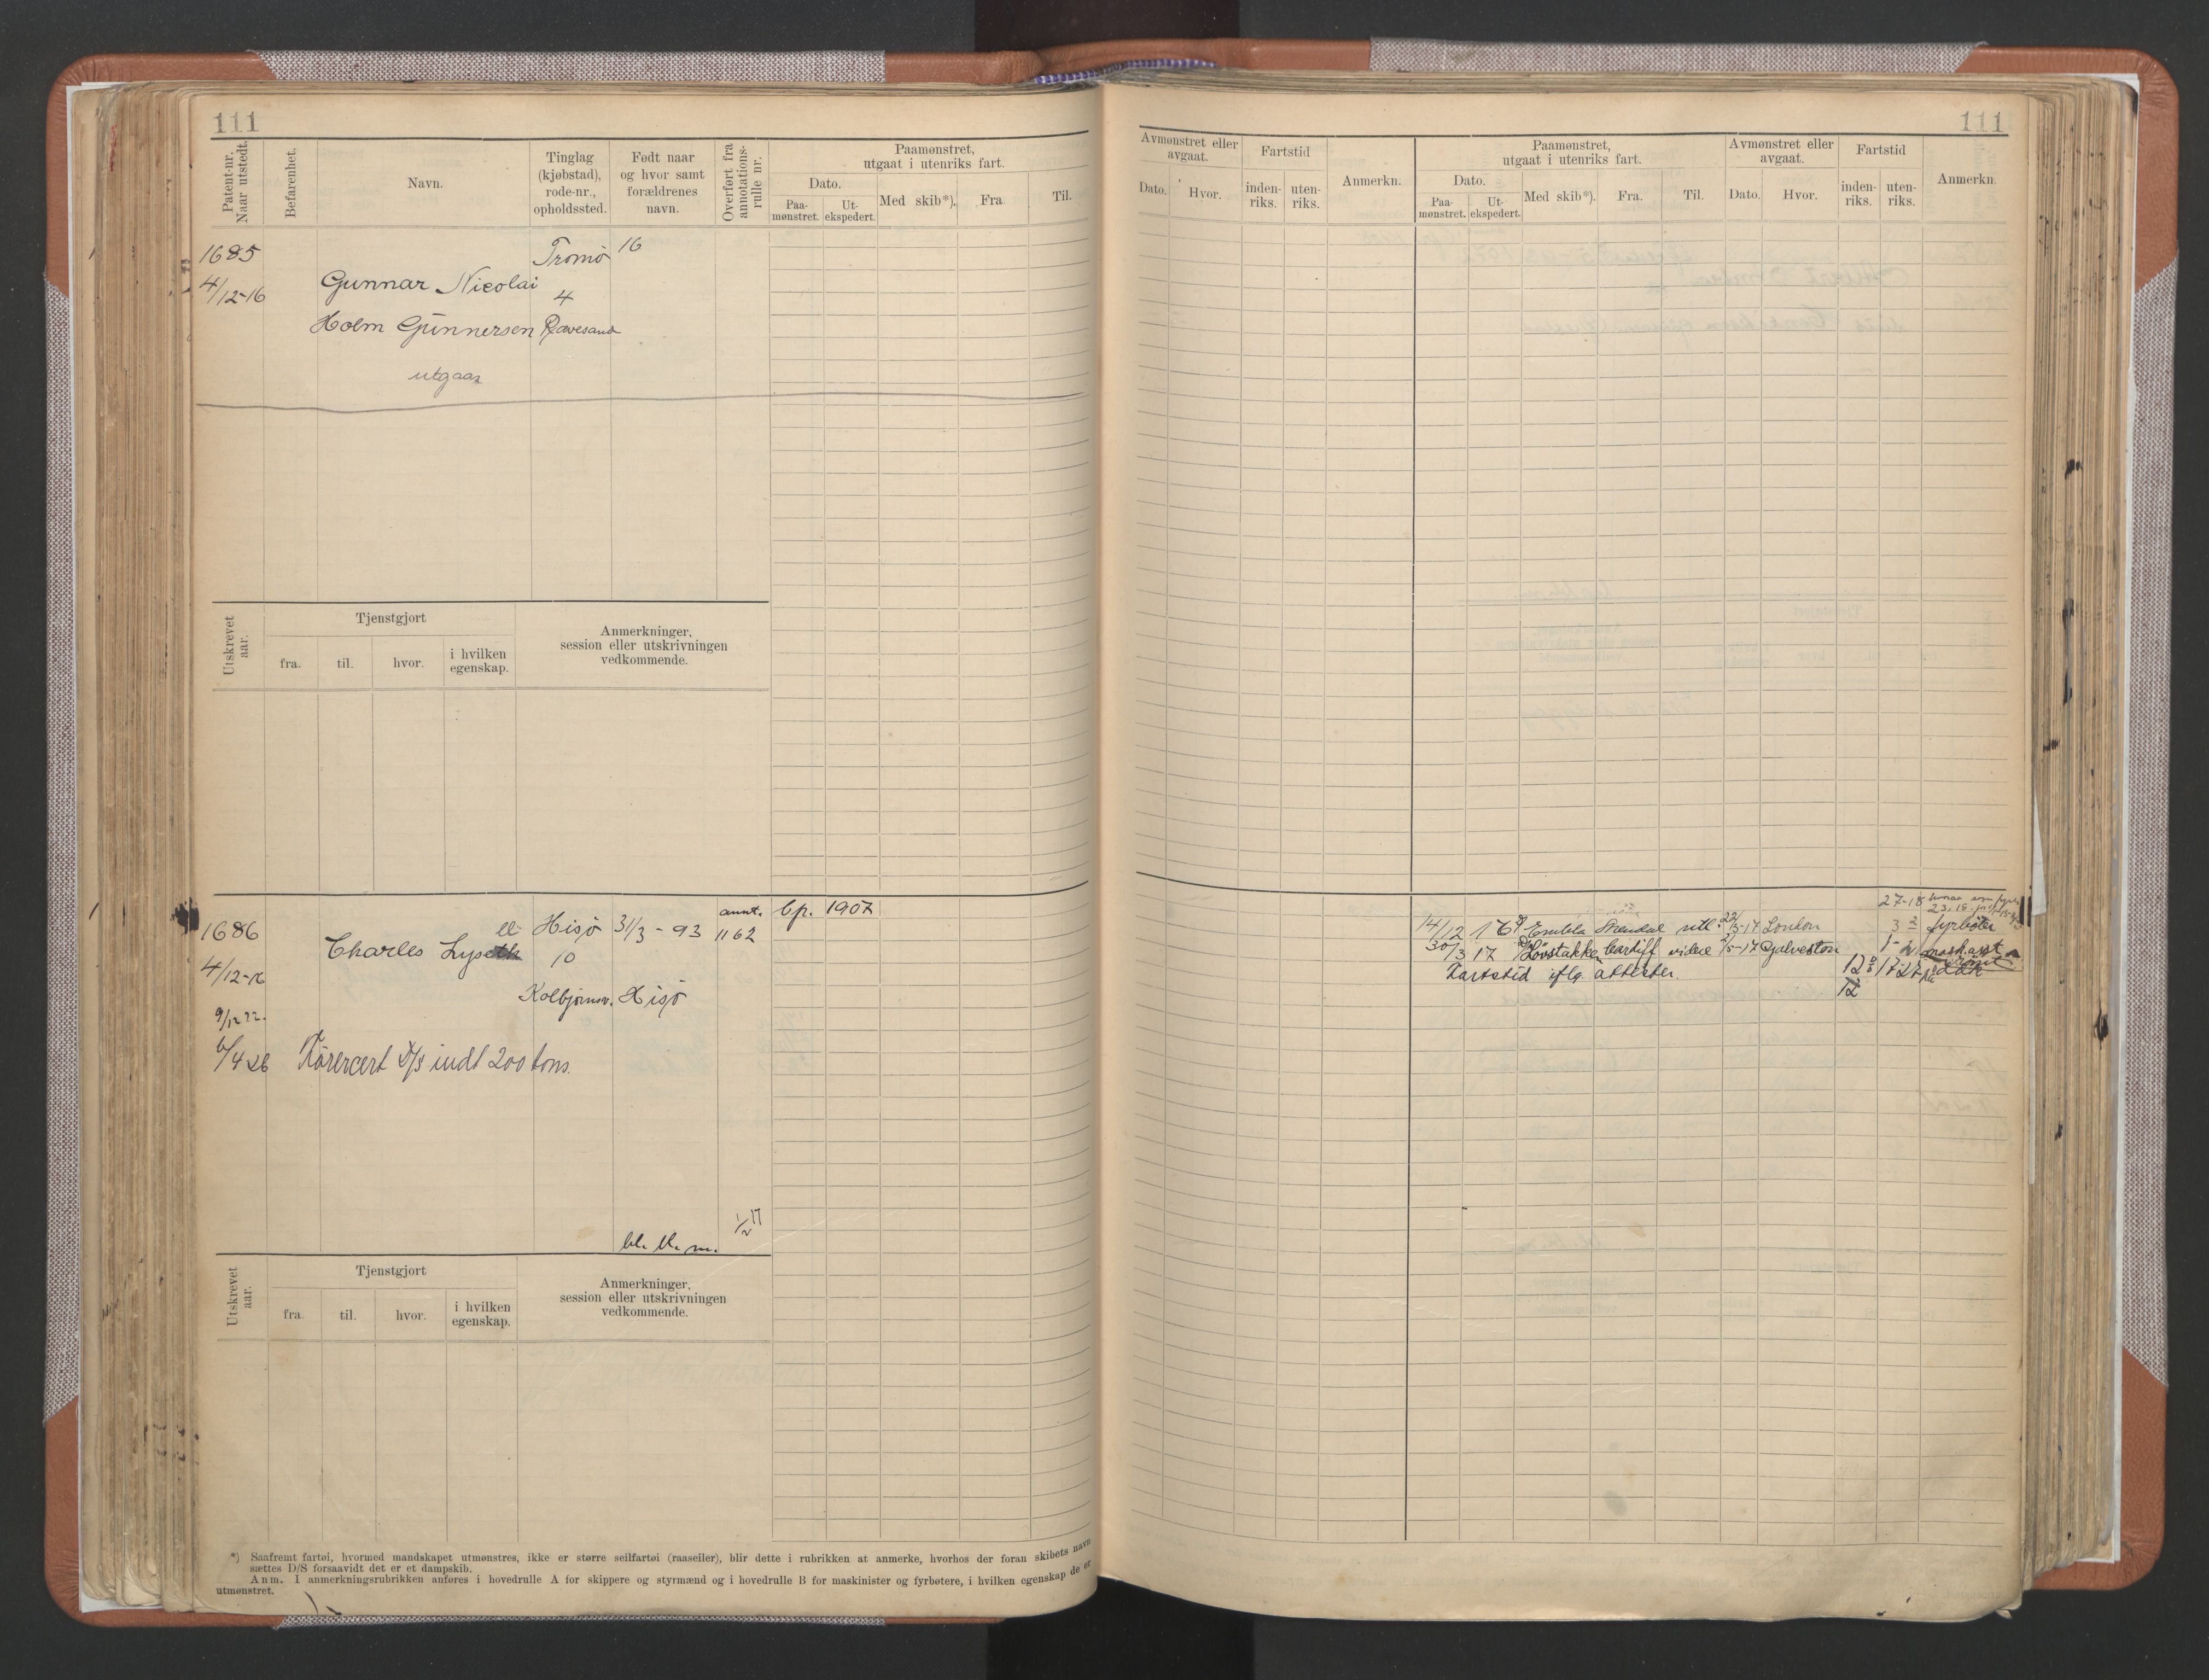 111
Patent-nr.
Naar utstedt.
Befarenhet.
Navn.
Tinglag
(kjøbstad),
rode-nr.,
opholdssted.
Født naar
og hvor samt
forældrenes
navn.
Overført fra
annotations-
rulle nr.
Paamønstret,
utgaat i utenriks fart.
Dato.
Paa-
mønstret.
Ut-
ekspedert.
Med skib*).
Fra.
Til.
1685
4/12-16
Gunnar Nicolai
Holm Gunnersen
Tromø
4
Rævesand
16
utgaar
Utskrevet
aar.
Tjenstgjort
fra.
til.
hvor.
i hvilken
egenskap.
Anmerkninger,
session eller utskrivningen
vedkommende.
1686
4/12-16
9/12 22.
6/4 26
Charles Lyseth
Hisø
10
Kolbjørnsv. Hisø
31/3 - 93
annt.
1162
bp. 1907
Førercert D/S indt 200 tons.
1/2 17
bl. bl. m.
Utskrevet
aar.
Tjenstgjort
fra.
til.
hvor.
i hvilken
egenskap.
Anmerkninger,
session eller utskrivningen
vedkommende.
*) Saafremt fartøi, hvormed mandskapet utmønstres, ikke er større seilfartøi (raaseiler), blir dette i rubrikken at anmerke, hvorhos der foran skibets navn
sættes D/S forsaavidt det er et dampskib.
Anm. I anmerkningsrubrikken anføres i hovedrulle A for skippere og styrmænd og i hovedrulle B for maskinister og fyrbøtere, i hvilken egenskap de er
utmønstret.
111
Avmønstret eller
avgaat.
Dato.
Hvor.
Fartstid
inden-
riks.
uten-
riks.
Anmerkn.
Paamønstret,
utgaat i utenriks fart.
Dato.
Paa-
mønstret.
Ut-
ekspedert.
Med skib*).
Fra.
Til.
Avmønstret eller
avgaat.
Dato.
Hvor.
Fartstid
inden-
riks.
uten-
riks.
Anmerkn.
27-18
14/12 16 D/S Embla Arendal 22/3-17 London 3 fyrbøter
30/3 17 D/S Løvstakken Cardiff videre /5-17 Galveston
Fartstid iflg. attester.
12